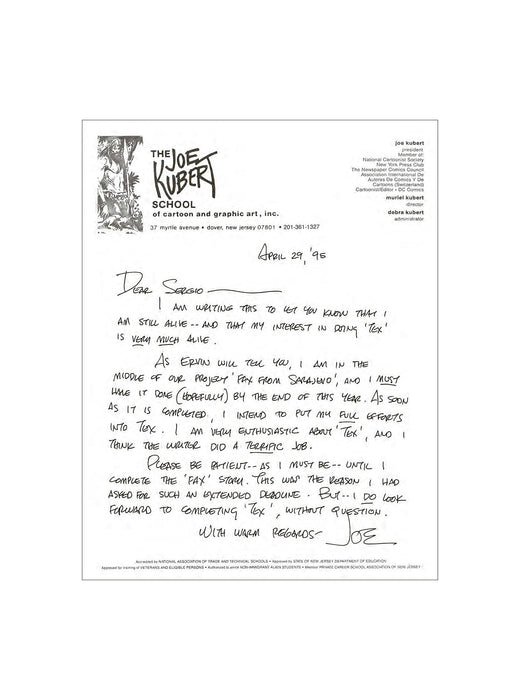 THE JOE
KUBERT
SCHOOL
of cartoon and graphic art, inc.
37 myrtle avenue • dover, new jersey 07801 • 201-361-1327
joe kubert
president
Member of:
National Cartoonist Society
New York Press Club
The Newspaper Comics Council
Association International De
Autores De Comics Y De
Cartoons (Switzerland)
Cartoonist/Editor - DC Comics
muriel kubert
director
debra kubert
administrator
APRIL 29, '95
DEAR SERGIO
I AM WRITING THIS TO LET YOU KNOW THAT I
AM STILL ALIVE -- AND THAT MY INTEREST IN DOING 'TEX'
IS VERY MUCH ALIVE.
AS ERVIN WILL TELL YOU, I AM IN THE
MIDDLE OF OUR PROJECT 'FAX FROM SARAJEVO', AND I MUST
HAVE IT DONE (HOPEFULLY) BY THE END OF THIS YEAR. AS SOON
AS IT IS COMPLETED, I INTEND TO PUT MY FULL EFFORTS
INTO TEX. I AM VERY ENTHUSIASTIC ABOUT 'TEX', AND I
THINK THE WRITER DID A TERRIFIC JOB.
PLEASE BE PATIENT -- AS I MUST BE -- UNTIL I
COMPLETE THE 'FAX' STORY. THIS WAS THE REASON I HAD
ASKED FOR SUCH AN EXTENDED DEADLINE. BUT -- I DO LOOK
FORWARD TO COMPLETING 'TEX', WITHOUT QUESTION.
WITH WARM REGARDS - JOE
Accredited by NATIONAL ASSOCIATION OF TRADE AND TECHNICAL SCHOOLS • Approved by STATE OF NEW JERSEY DEPARTMENT OF EDUCATION
Approved for training of VETERANS AND ELIGIBLE PERSONS • Authorized to enroll NON-IMMIGRANT ALIEN STUDENTS • Member PRIVATE CAREER SCHOOL ASSOCIATION OF NEW JERSEY